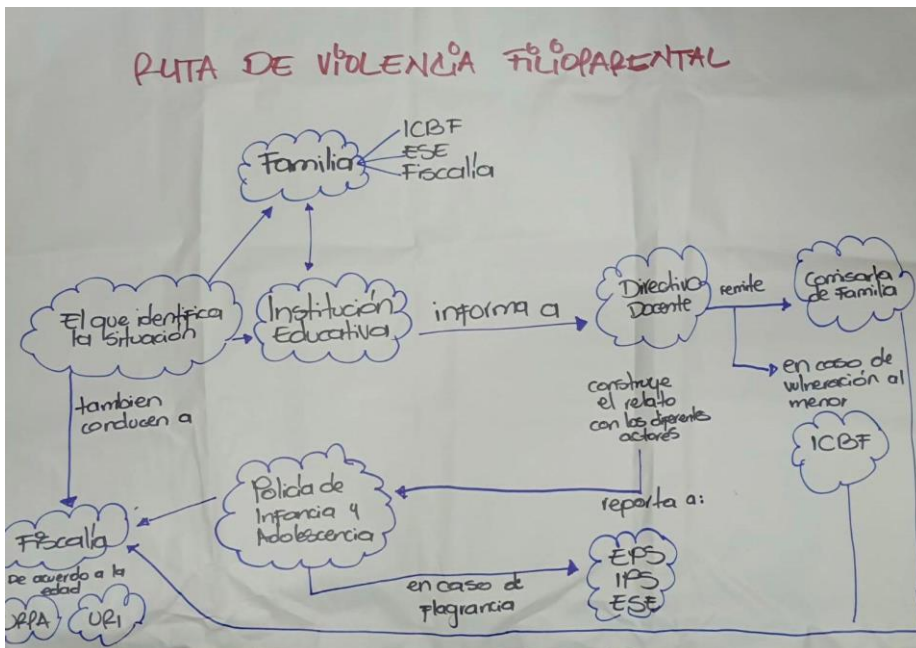 RUTA DE VIOLENCIA FILIOPARENTAL
Familia
ICBF
ESE
Fiscalía
El que identifica
la situación
Institución
Educativa
informa a
Directivo
Docente
remite
Comisaría
de Familia
en caso de
vulneración al
menor
ICBF
tambien
conducen a
construye
el relato
con los diferentes
actores
Policia de
Infancia y
Adolescencia
reporta a:
EPS
IPS
ESE
en caso de
flagrancia
Fiscalía
De acuerdo a la
edad
URI